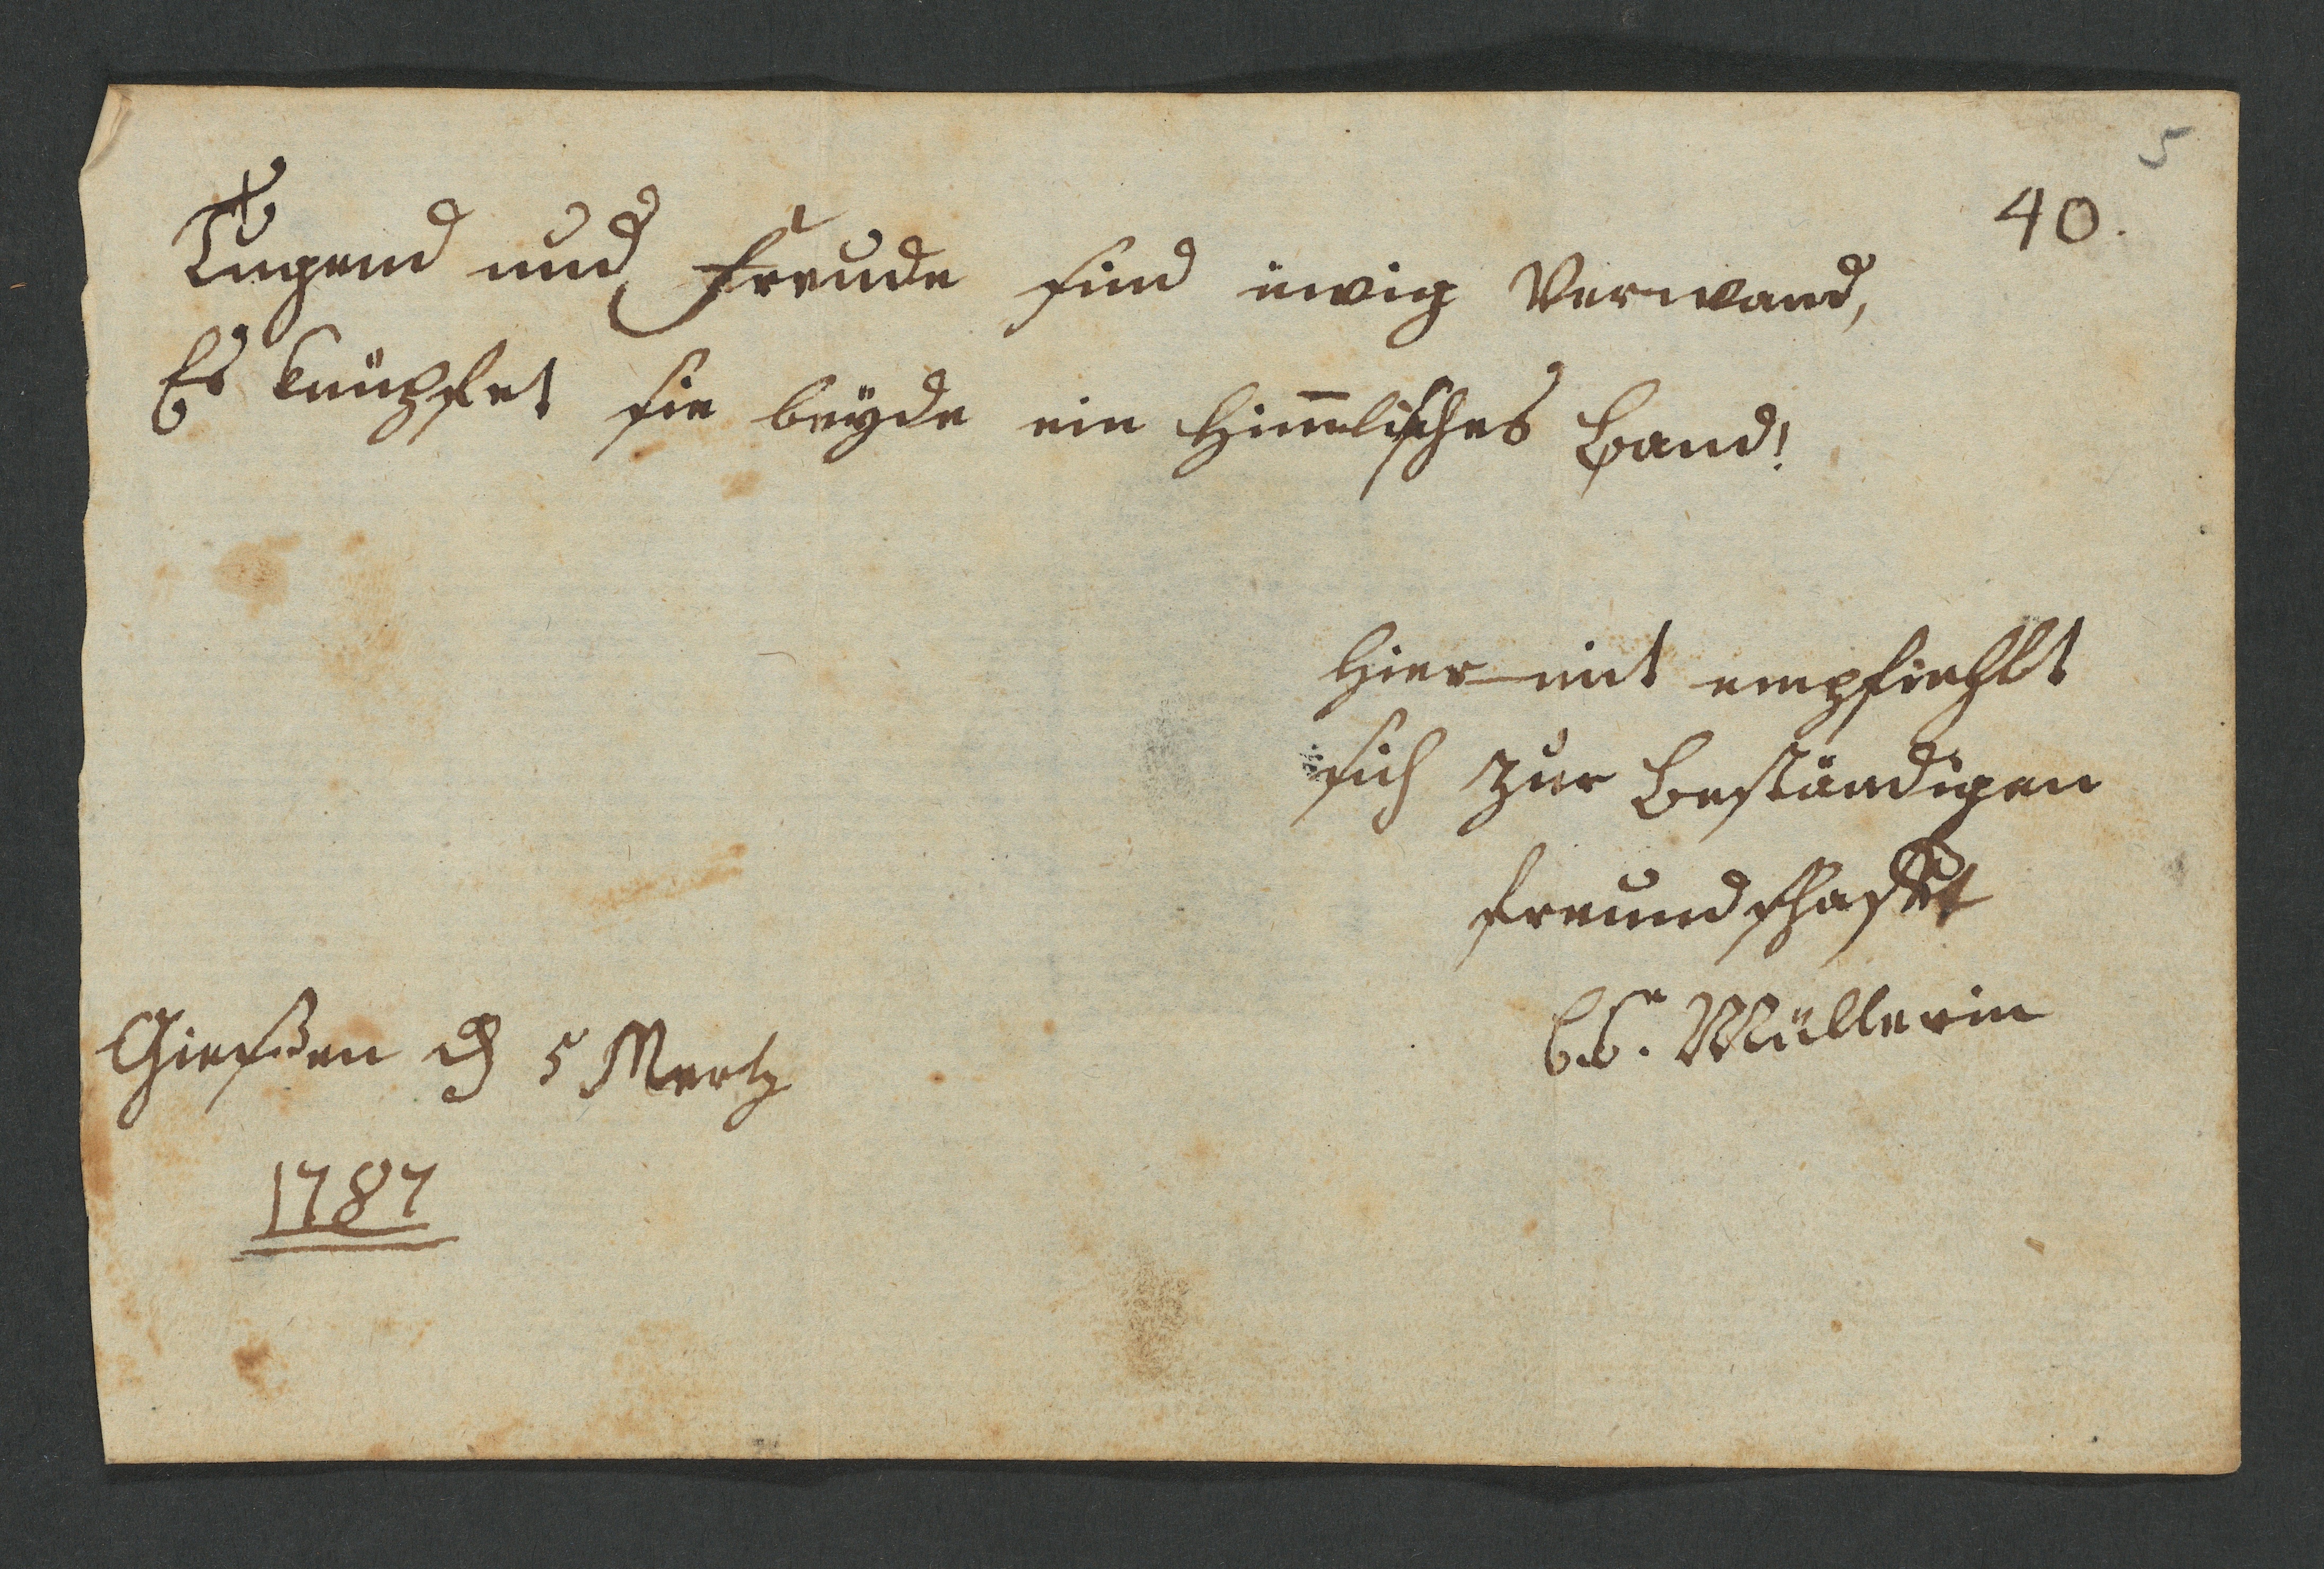 5
40.
Tugend und Freude sind ewig Verwand,
Es knüpfet sie beyde ein Him̅lisches Band!
Hier mit empfiehlt
sich zur Beständigen
freundschafft
Müllerin
Gießen d 5 Mertz
1787